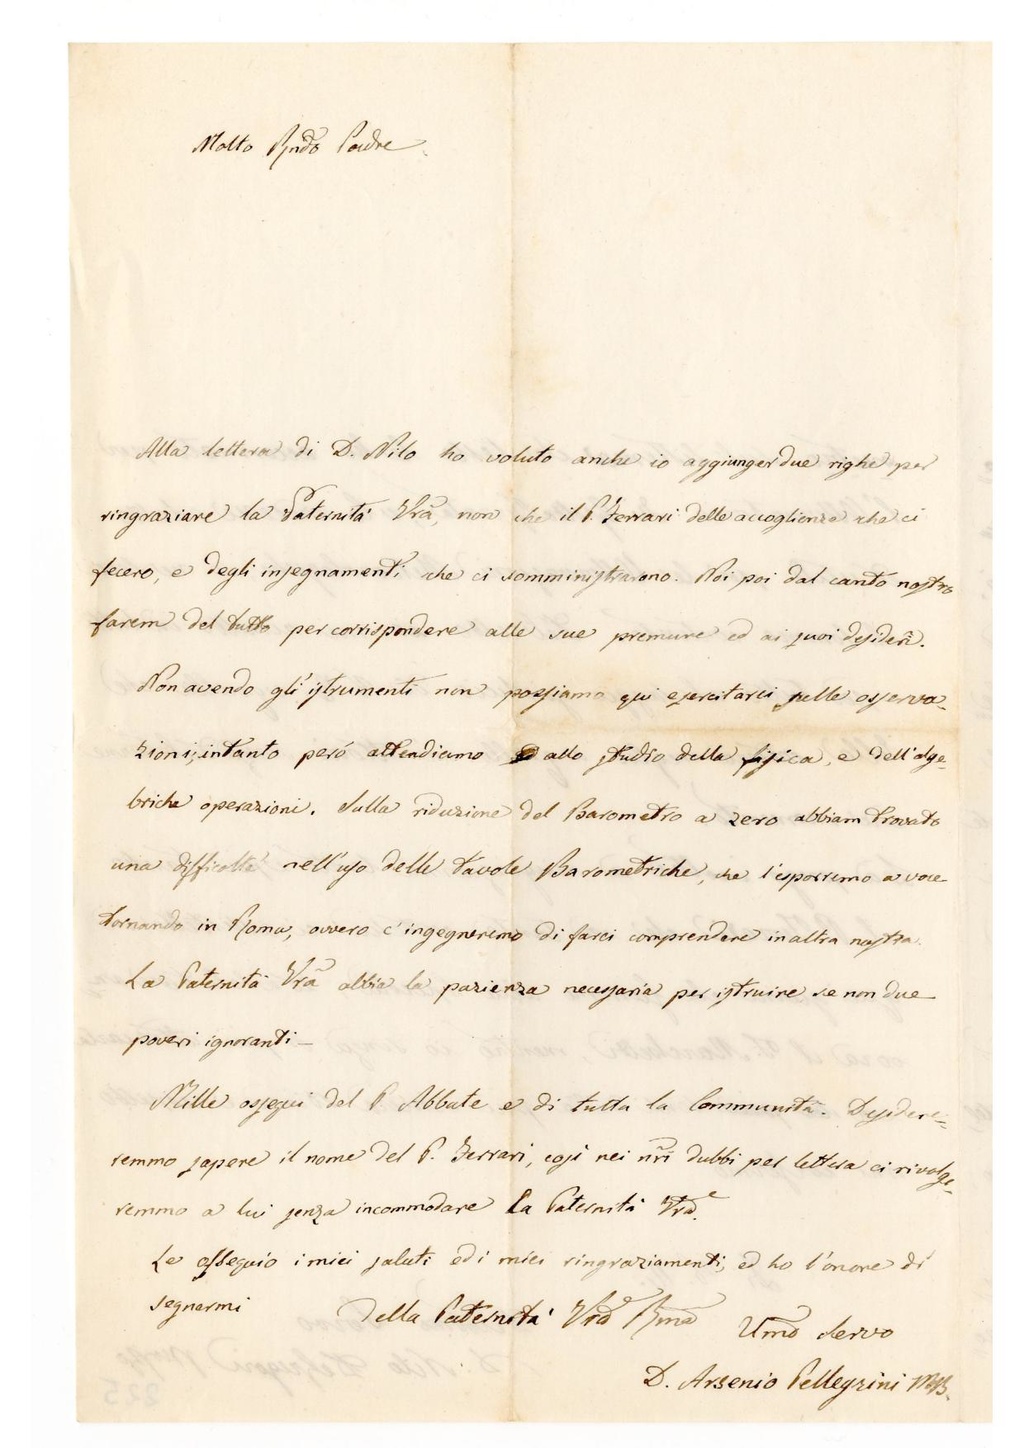 Molto Rndo Padre
Alla lettera di D. Nilo ho voluto anche io aggiunger due righe per
ringraziare la Paternità Vra, non che il P. Ferrari delle accoglienze che ci
fecero, e degli insegnamenti che ci somministrarono. Noi poi dal canto nostro
farem del tutto per corrispondere alle sue premure ed ai suoi desiderî.
Non avendo gl'istrumenti non possiamo qui esercitarci sulle osserva-
zioni; intanto però attendiamo allo studio della fisica, e dell'alge-
briche operazioni. Sulla riduzione del Barometro a zero abbiam trovato
una difficoltà nell'uso delle tavole Barometriche, che l'esporremo a voce
tornando in Roma, ovvero c'ingegneremo di farci comprendere in altra nostra.
La Paternità Vra abbia la pazienza necessaria per istruire se non due
poveri ignoranti—
Mille ossequi del P. Abbate e di tutta la Communità. Desidere-
remmo sapere il nome del P. Ferrari, così nei nri dubbi per lettera ci rivolge-
remmo a lui senza incommodare la Paternità Vra.
Le ossequio i miei saluti ed i miei ringraziamenti, ed ho l'onore di
segnarmi
Della Paternità Vra Rma
Umo servo
D. Arsenio Pellegrini